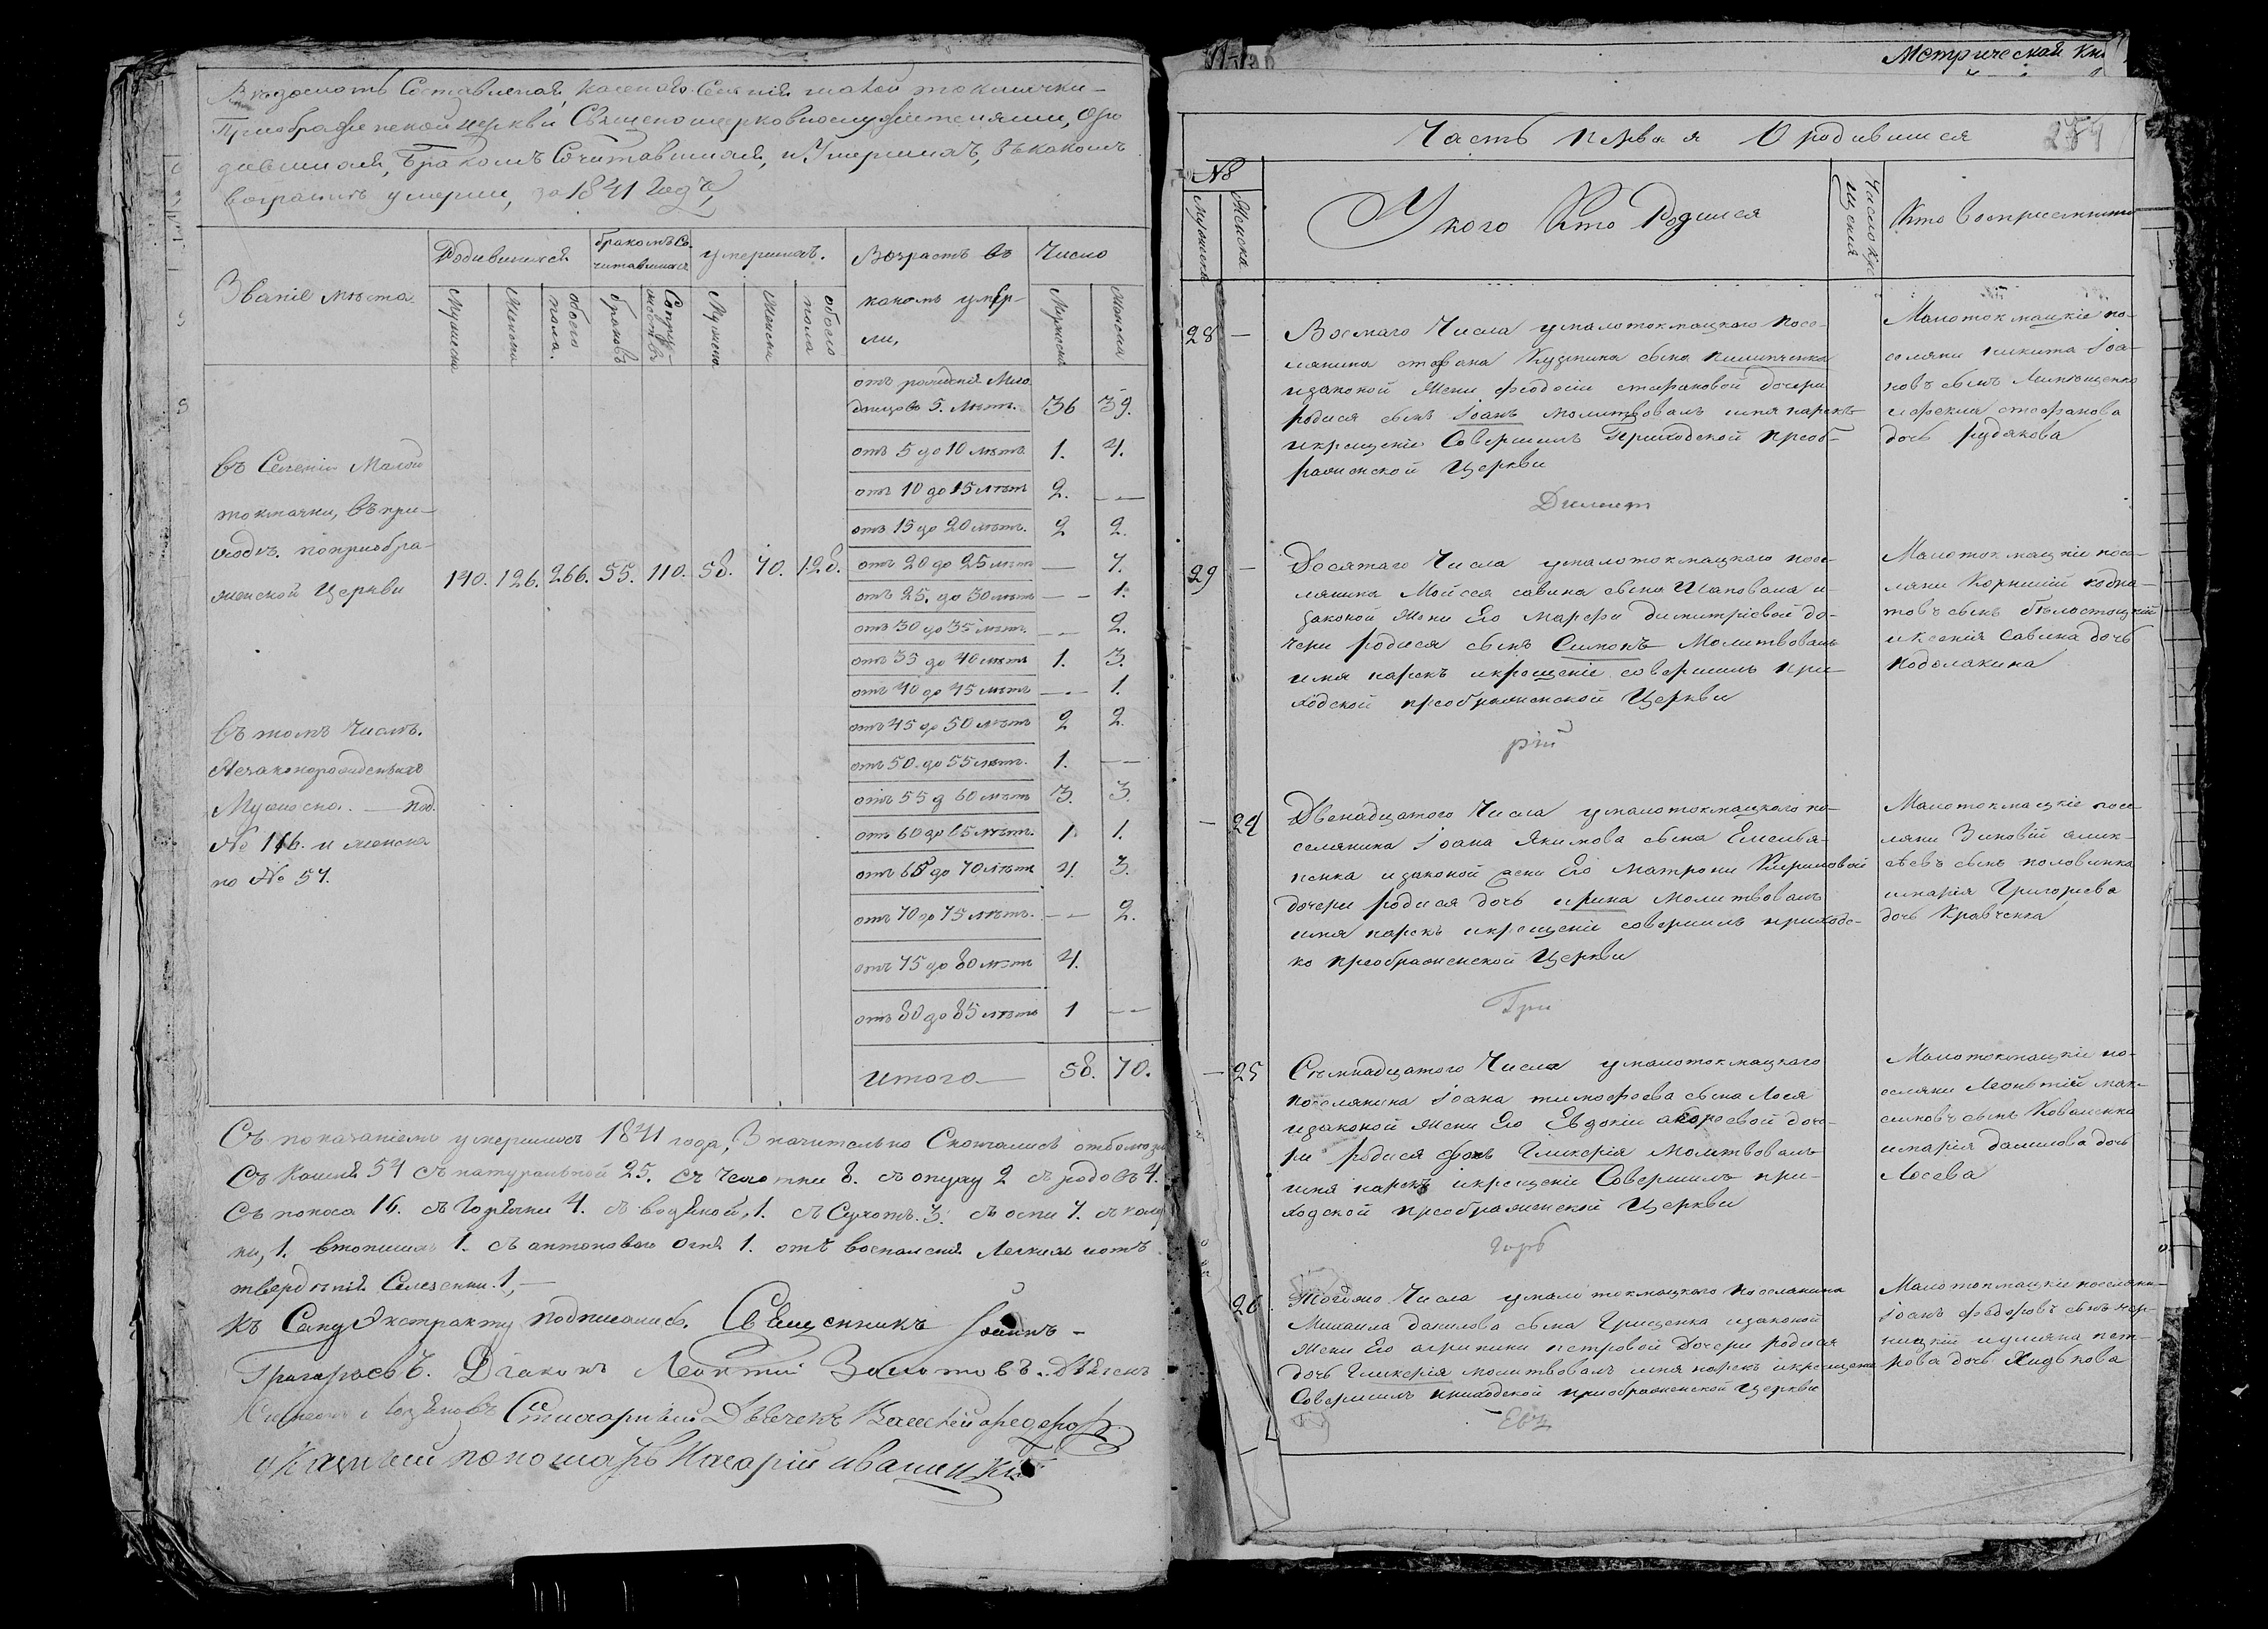 Ведомость Составленая казенаго Селенія малой токмачки
Приображенской церкви Священоцерковнослужителями, Оро
дившихся, Бракомъ Сочитавшихся, и Умершихъ, въ какомъ
возрасте умерли, за 1841 Годъ,
Званіе места
Родившихся
бракомъ Со-
читавшихся
умершихъ.
Возрастъ въ
какомъ умер-
ли,
Число
Мужеска
Женска
обоего пола.
браковъ
Мужеска
Женска
обоего пола
Мужеска
Женска
въ Селеніи Малой
токмачки, въ при-
ходе. поприобра-
женской Церкви
140. 126. 266. 55. 110. 58. 70. 128.
въ томъ числе.
Незаконорожденныхъ
Мужеска. — под.
№ 116. и женска
по № 54.
отъ рожденія
до 5. летъ. 36 39.
отъ 5 до 10 летъ. 1. 4.
отъ 10 до 15 летъ 2. — —
отъ 15 до 20 летъ. 2 2.
отъ 20 до 25 летъ — 7.
отъ 25. до 30 летъ — — 1.
отъ 30 до 35 летъ. — — 2.
отъ 35 до 40 летъ 1. 3.
отъ 40 до 45 летъ — — 1.
отъ 45 до 50 летъ 2 2.
отъ 50. до 55 летъ. 1. — —
отъ 55 д 60 летъ 3. 3.
отъ 60 до 65 летъ. 1 1.
отъ 65 до 70 летъ 4. 3.
отъ 70 до 75 летъ. — — 2.
отъ 75 до 80 летъ 4.
отъ 80 до 85 летъ 1 — —
итого — 58. 70.
Съ показаніемъ умершихъ 1841 года, Значительно Скончались
Съ Кашля 54 съ натуральной 25. съ Чехотки 8. съ опуху 2 съ родовъ 4.
Съ поноса 16. съ Горячки 4. съ водяной, 1. съ Сухотъ. 3. съ оспи 7.
1. 1. съ антонового Огня 1. отъ воспаленія Легкихъ
Селезенки. 1, —
Къ Сему Экстракту подписались. Священникъ Іоаннъ -
Григорьевъ. Діаконъ Леонтій Золотовъ.
Стихарный Дьячекъ
пономарь Макарій иваницкій
Метрическая Кни
Часть первая О родившихся
№
Мужеска
Женска
У кого Кто Родился
Число
Кто восприемники
28 — Восмаго Числа умалотокмацкого посе-
лянина стефана Кузмина сына пилипченка
изаконой жени феодосіи стефановой дочери
родися сынъ Іоанъ молитвовалъ имя нарекъ
икрещеніе Совершилъ Приходской преоб-
раженской Церкви
Малотокмацкіе по-
селяни никита Іоа-
новъ сынъ
стефанова
дочь рудакова
29 — Десятаго Числа умалотокмацкого посе-
лянина Мойсея савина сына Шаповала и-
законой жени Его марфи димитріевой до-
чери родися сынъ Симонъ Молитвовалъ
имя нарекъ икрещеніе совершилъ при-
ходской преображенской Церкви
рій
Малотокмацкіе посе-
ляни Корнилій кодра-
товъ сынъ белостоцкій
иксенія Савина дочь
подолякина
— 24 Двенадцатого Числа умалотокмацкого по-
селянина Іоана Якимова сына Емелья-
ненка изаконой жени Его матрони Кириловой
дочери родися дочь ирина молитвовалъ
имя нарекъ икрещеніе совершилъ приходс-
ко преображенской Церкви
Гри
Малотокмацкіе посе-
ляни Зиновій алик-
сеевъ сынъ половинка
имарія Григорьева
дочь Кравченка
— 25 Семнадцатого Числа умалотокмацкого
поселянина Іоана тимофеева сына Лося
изаконой жени Его Евдокіи дочери
родися дочь Гликерія Молитвовалъ
имя нарекъ икрещеніе Совершилъ при-
ходской преображенской Церкви
Малотокмацкіе по-
селяни Леонтій мак-
симовъ сынъ Коваленко
имарія данилова дочь
Лосева
26 Тогожо Числа умалотокмацкого поселянина
Михаила данилова сына Грищенка изаконой
жени Его агрипини петровой Дочери родися
дочь Гликерія молитвовалъ имя нарекъ икрещеніе
Совершилъ приходской приображенской Церкви
Малотокмацкіе поселяни-
Іоанъ федоровъ сынъ чер-
ницкій иуляна пет-
рова дочь